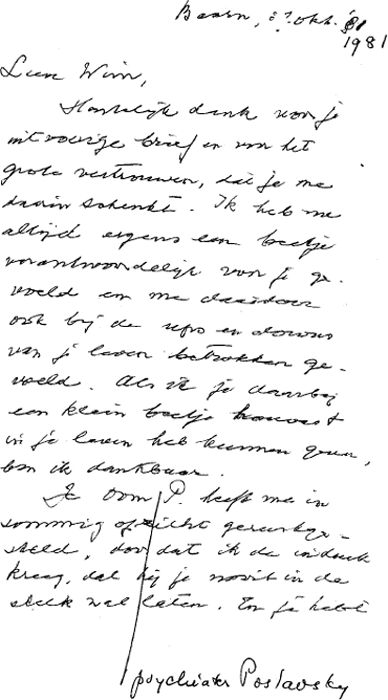 Baarn, okt. 81
1981
Lieve Wim,
Hartelijk dank voor je
uitvoerige brief en voor het
grote vertrouwen, dat je me
daarin schenkt. Ik heb me
altijd ergens een beetje
verantwoordelijk voor je ge-
voeld en me daardoor
ook bij de ups en downs
van je leven betrokken ge-
voeld. Als ik je daarbij
een klein beetje houvast
in je leven heb kunnen geven,
ben ik dankbaar.
Je oom P. heeft me in
sommig opzicht gerustge-
steld, doordat ik de indruk
kreeg, dat hij je nooit in de
steek zal laten. En je hebt
psychiater Poslavsky